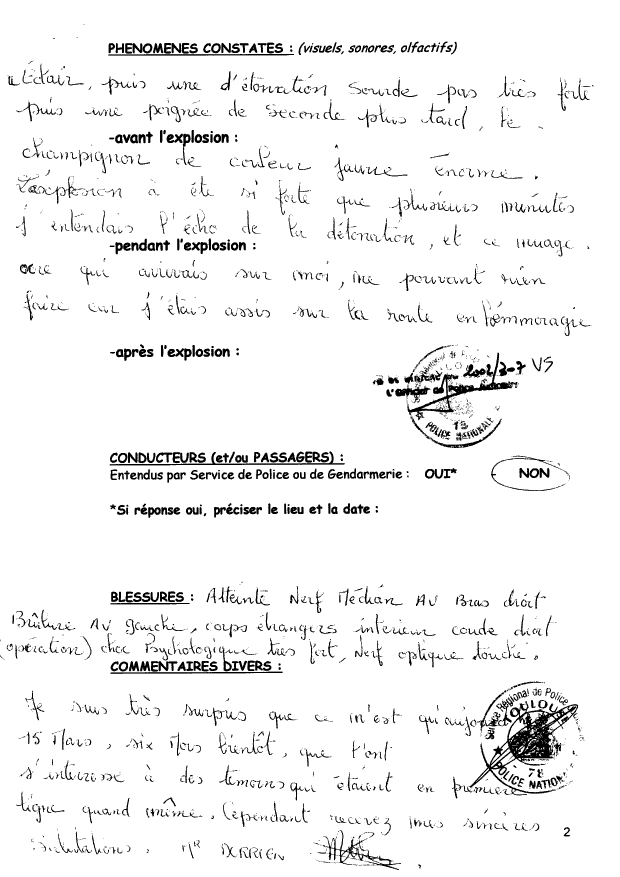 PHENOMENES CONSTATES : (visuels, sonores, olfactifs)
Éclair, puis une d'étonation sourde pas très forte
puis une poignée de seconde plus tard, le
-avant l'explosion :
champignon de couleur jaune énorme.
L'explosion à été si forte que plusieurs minutes
j'entendais l'écho de la détonation, et ce nuage
-pendant l'explosion :
ocre qui arrivais sur moi, ne pouvant rien
faire car j'étais assis sur la route en hémmoragie
-après l'explosion :
2002/3-7 VS
L'OFFICIER DE POLICE JUDICIAIRE
15
POLICE NATIONALE
CONDUCTEURS (et/ou PASSAGERS) :
Entendus par Service de Police ou de Gendarmerie : OUI* NON
*Si réponse oui, préciser le lieu et la date :
BLESSURES : Atteinte Nerf Médian AV Bras droit
Brûlure AV gauche, corps étrangers interieur coude droit
(opération) choc Psychologique très fort, Nerf optique touché.
COMMENTAIRES DIVERS :
Je suis très surpris que ce n'est qu'aujourd
15 Mars, six Mois bientôt, que l'ont
s'interesse à des temoins qui étaient en première
ligne quand même. Cependant recevez mes sincères
Salutations. Mr DERRIEN
Service Régional de Police
TOULOUSE
78
POLICE NATIONALE
2